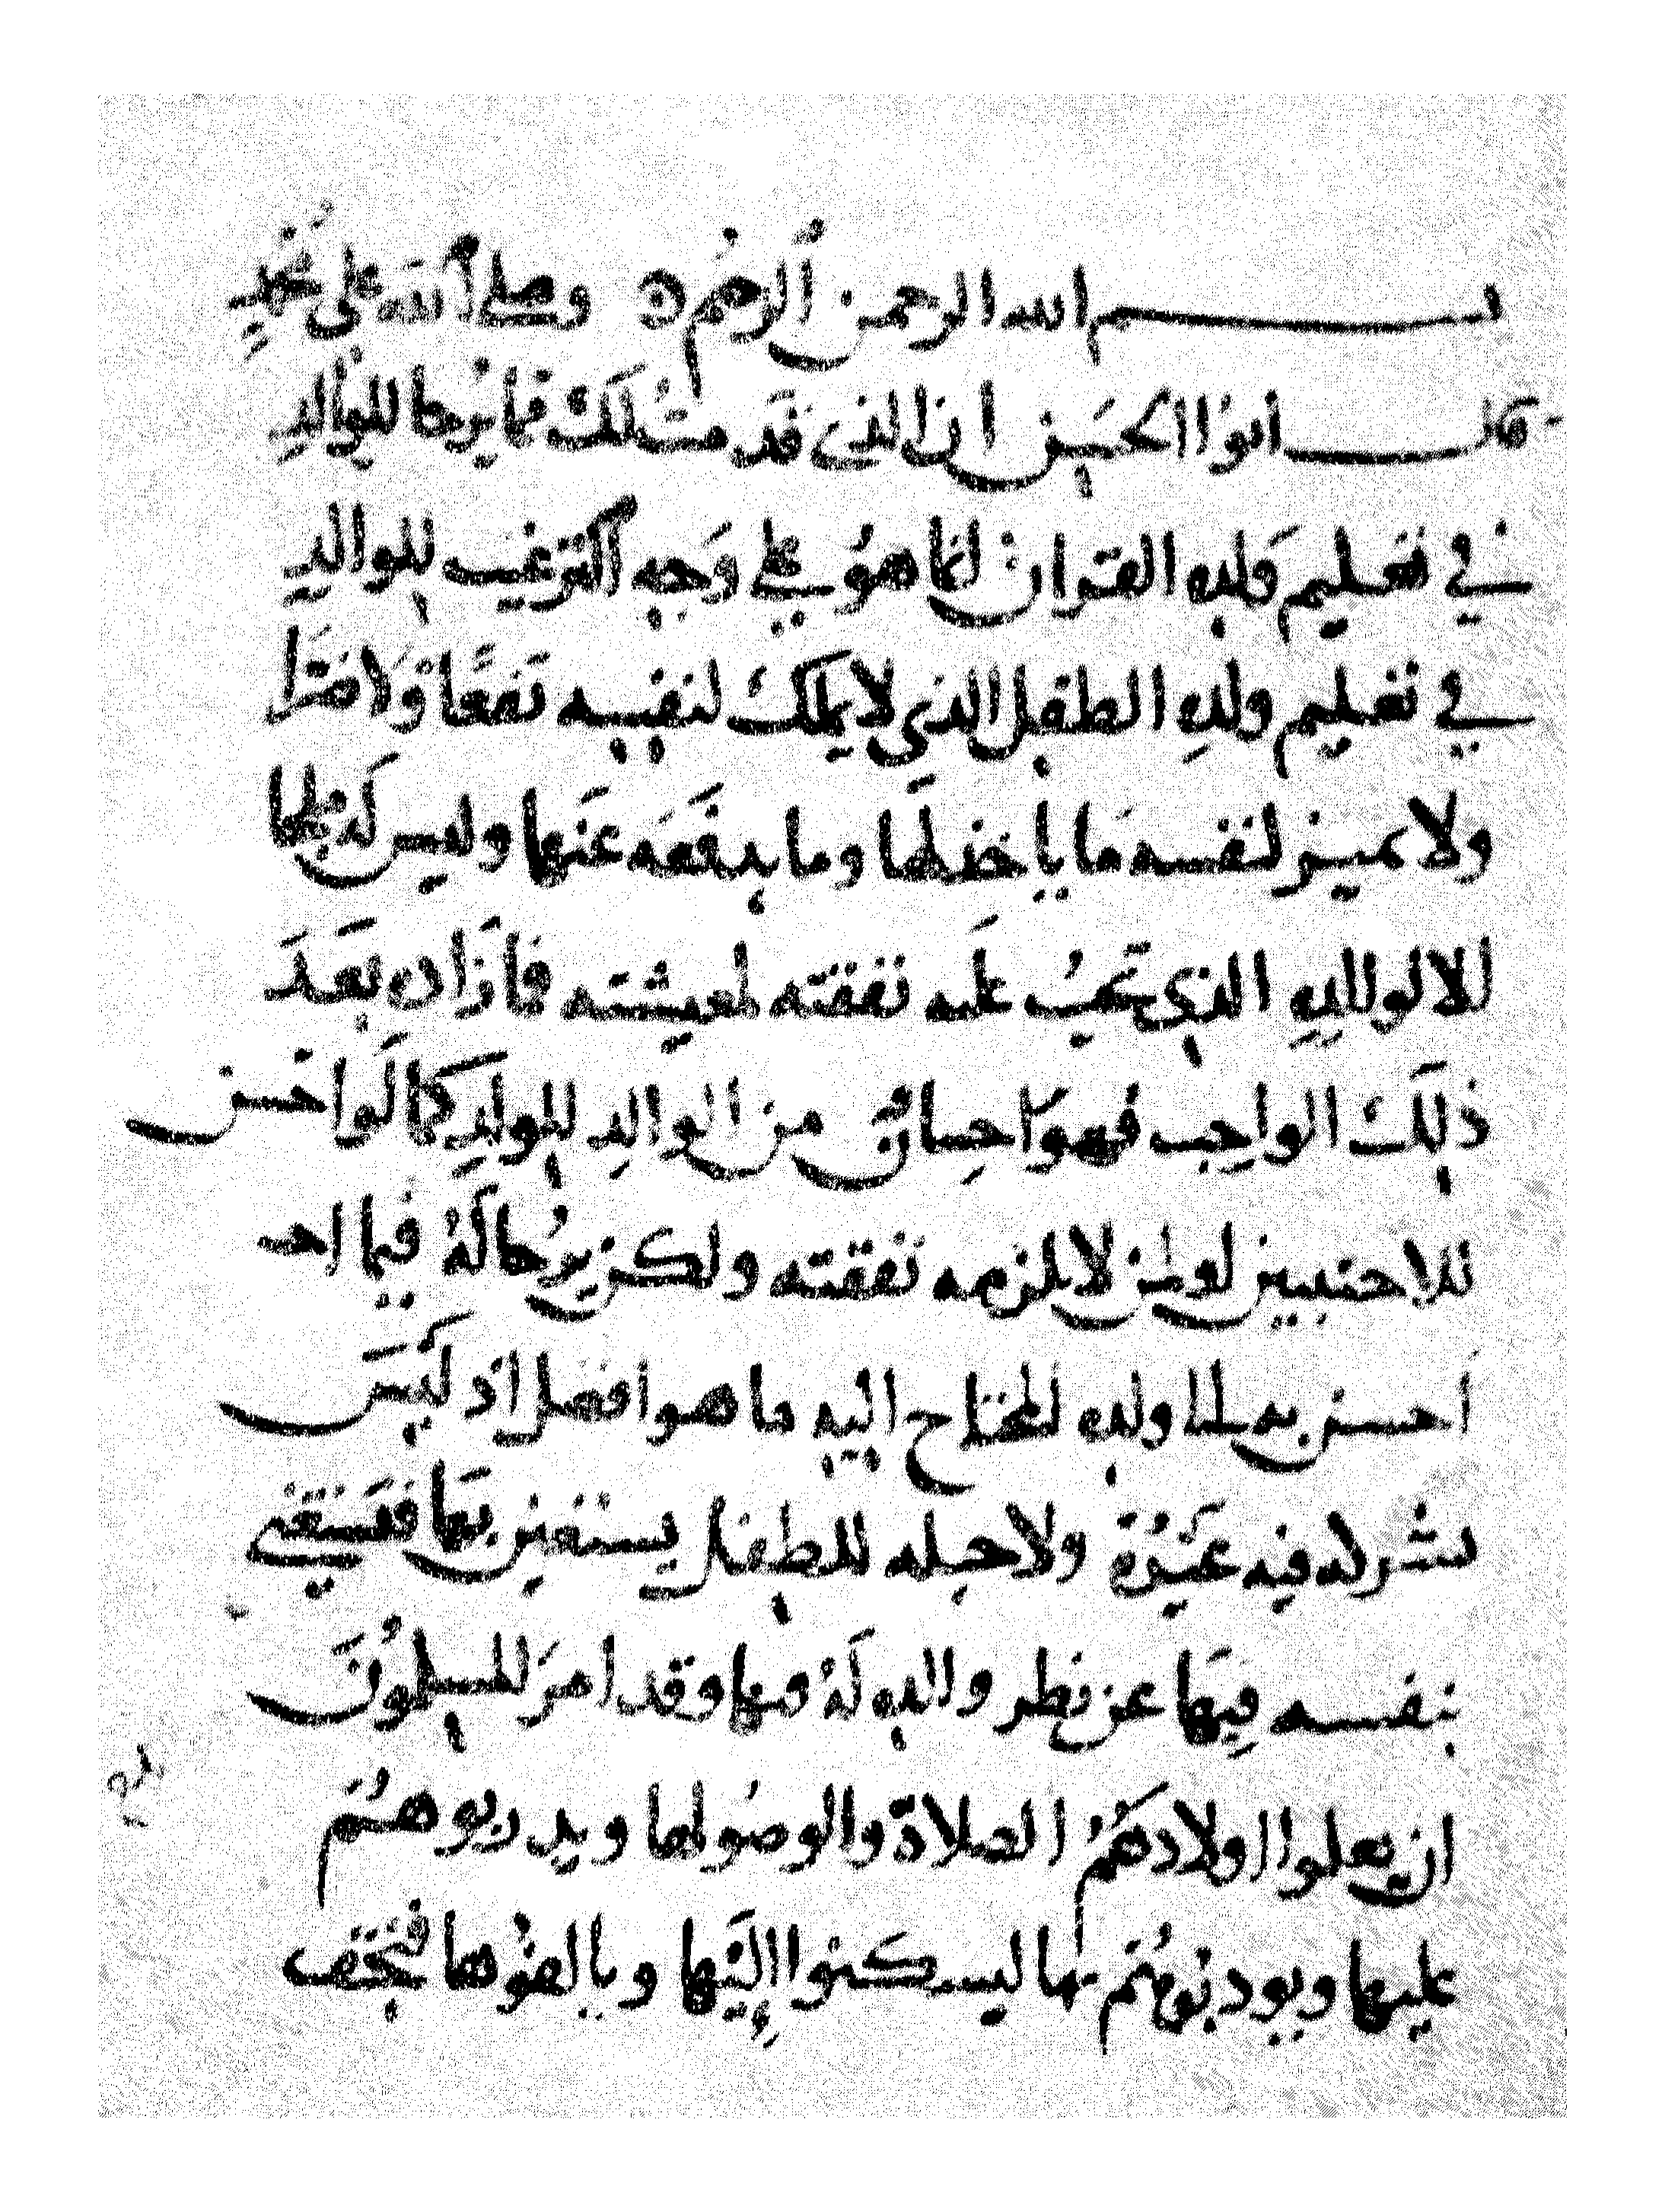 بسم الله الرحمن الرحيم وصلى الله على محمد
قال ابو الحسن ان الذي قد مثلك فما يرجا للوالد
في تعليم ولده القران انما هو على وجه الترغيب للوالد
في تعليم ولده الطفل الذي لا يملك لنفسه نفعا ولا ضرا
ولا يميز لنفسه ما ياخذ لها وما يدفعه عنها وليس له ملجا
الا لوالده الذي تجب عليه نفقته لمعيشته فما زاده بعد
ذلك الواجب فهو احسان من الوالد للولد كما لو احسن
للاجنبيين او لمن لا يلزمه نفقته ولكن يرجا له فيما احـ
احسن به الى ولده المحتاج اليه ما هو افضل اذ ليس
يشركه فيه غيره ولا حيله للطفل يستعين بها فيستغني
بنفسه فيها عن نظر والده له فيها وقد امر المسلمون
ان يعلموا اولادهم الصلاة والوضو لها ويدربوهم
عليها ويودبوهم بها ليسكنوا اليها ويالفوها فتخف